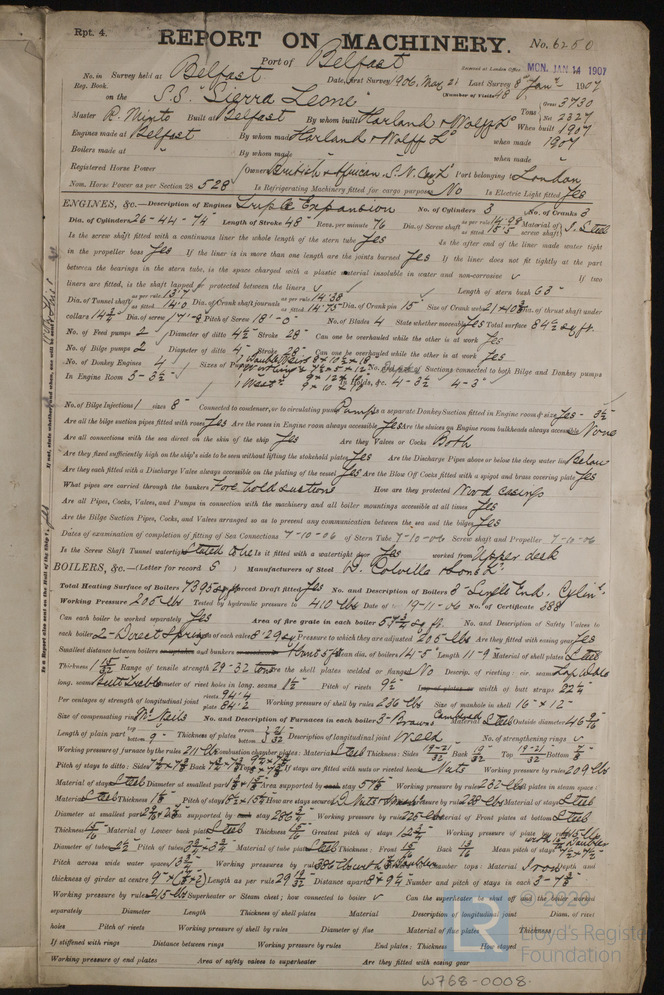 Rpt. 4.
REPORT ON MACHINERY.
No. 6250
Port of Belfast
Received at London Office MON. JAN. 14 1907
No. in Survey held at Belfast Date, first Survey 1906, May 21 Last Survey 8th Jany 1907
Reg. Book. (Number of Visits 48)
on the S.S. "Sierra Leone" Tons Gross 3730 Net 2327
Master R. Minto Built at Belfast By whom built Harland & Wolff Ld When built 1907
Engines made at Belfast By whom made Harland & Wolff Ld when made 1907
Boilers made at " By whom made " when made "
Registered Horse Power Owners British & African S. N. Coy Ld Port belonging London
Nom. Horse Power as per Section 28 528 Is Refrigerating Machinery fitted for cargo purposes No Is Electric Light fitted Yes
ENGINES, &c.—Description of Engines Triple Expansion No. of Cylinders 3 No. of Cranks 3
Dia. of Cylinders 26-44-74" Length of Stroke 48" Revs. per minute 76 Dia. of Screw shaft as per rule 14.98 as fitted 15.5 Material of screw shaft S. Steel
Is the screw shaft fitted with a continuous liner the whole length of the stern tube Yes Is the after end of the liner made water tight
in the propeller boss Yes If the liner is in more than one length are the joints burned Yes If the liner does not fit tightly at the part
between the bearings in the stern tube, is the space charged with a plastic material insoluble in water and non-corrosive ✓ If two
liners are fitted, is the shaft lapped or protected between the liners ✓ Length of stern bush 63"
Dia. of Tunnel shaft as per rule 13.7 as fitted 14.0 Dia. of Crank shaft journals as per rule 14.38 as fitted 14.75 Dia. of Crank pin 15" Size of Crank webs Dia. of thrust shaft under
collars 14¾ Dia. of screw 17'-8 Pitch of Screw 18'-0" No. of Blades 4 State whether moveable Yes Total surface 84½ sq. ft.
No. of Feed pumps 2 Diameter of ditto 4½ Stroke 28" Can one be overhauled while the other is at work Yes
No. of Bilge pumps 2 Diameter of ditto 4½ Stroke 28" Can one be overhauled while the other is at work Yes
No. of Donkey Engines 4 Sizes of Pumps No. and size of Suctions connected to both Bilge and Donkey pumps
In Engine Room 5-3½" In Holds, &c. 4-3½ 4-3"
No. of Bilge Injections 1 sizes 8" Connected to condenser, or to circulating pump Pump Is a separate Donkey Suction fitted in Engine room & size Yes - 3½"
Are all the bilge suction pipes fitted with roses Yes Are the roses in Engine room always accessible Yes Are the sluices on Engine room bulkheads always accessible None
Are all connections with the sea direct on the skin of the ship Yes Are they Valves or Cocks Both
Are they fixed sufficiently high on the ship's side to be seen without lifting the stokehold plates Yes Are the Discharge Pipes above or below the deep water line Below
Are they each fitted with a Discharge Valve always accessible on the plating of the vessel Yes Are the Blow Off Cocks fitted with a spigot and brass covering plate Yes
What pipes are carried through the bunkers Fore hold suctions How are they protected Wood casings
Are all Pipes, Cocks, Valves, and Pumps in connection with the machinery and all boiler mountings accessible at all times Yes
Are the Bilge Suction Pipes, Cocks, and Valves arranged so as to prevent any communication between the sea and the bilges Yes
Dates of examination of completion of fitting of Sea Connections 7-10-06 of Stern Tube 7-10-06 Screw shaft and Propeller 7-10-06
Is the Screw Shaft Tunnel watertight Stated to be Is it fitted with a watertight door Yes worked from Upper deck
BOILERS, &c.—(Letter for record S) Manufacturers of Steel D. Colville & Sons Ld
Total Heating Surface of Boilers 7395 sq ft Forced Draft fitted Yes No. and Description of Boilers 3 Single End. Cylinl.
Working Pressure 205 lbs Tested by hydraulic pressure to 410 lbs Date of test 19-11-06 No. of Certificate 388
Can each boiler be worked separately Yes Area of fire grate in each boiler sq ft. No. and Description of Safety Valves to
each boiler 2-Direct Spring Area of each valve 8.29 sq" Pressure to which they are adjusted 205 lbs Are they fitted with easing gear Yes
Smallest distance between boilers and bunkers Mean dia. of boilers 14'-5" Length 11'-9" Material of shell plates Steel
Thickness 1 15/32 Range of tensile strength 29-32 tons Are the shell plates welded or flanged No Descrip. of riveting: cir. seams Lap Dble
long. seams Butt Treble Diameter of rivet holes in long. seams 1½" Pitch of rivets 9½" width of butt straps 22½"
Per centages of strength of longitudinal joint rivets 94.4 plate 84.2 Working pressure of shell by rules 236 lbs Size of manhole in shell 16" x 12"
Size of compensating ring No. and Description of Furnaces in each boiler 3-Browns Cambered Material Steel Outside diameter 46 9/16
Length of plain part top bottom 9" Thickness of plates crown bottom 21/32 Description of longitudinal joint Weld No. of strengthening rings ✓
Working pressure of furnace by the rules 211 lbs Combustion chamber plates: Material Steel Thickness: Sides 19-21/32 Back 19/32 Top 19-21/32 Bottom
Pitch of stays to ditto: Sides Back Top If stays are fitted with nuts or riveted heads Nuts Working pressure by rules 209 lbs
Material of stays Steel Diameter at smallest part Area supported by each stay Working pressure by rules 232 lbs End plates in steam space:
Material Steel Thickness Pitch of stays How are stays secured Working pressure by rules Material of stays Steel
Diameter at smallest part Area supported by each stay Working pressure by rules 225 lbs Material of Front plates at bottom Steel
Thickness 15/16 Material of Lower back plate Steel Thickness 15/16 Greatest pitch of stays Working pressure of plate by rules
Diameter of tubes 2½ Pitch of tubes Material of tube plates Steel Thickness: Front 15/16 Back 13/16 Mean pitch of stays
Pitch across wide water spaces Working pressures by rules Girders to Chamber tops: Material Iron Depth and
thickness of girder at centre Length as per rule Distance apart Number and pitch of stays in each
Working pressure by rules 215 lbs Superheater or Steam chest; how connected to boiler ✓ Can the superheater be shut off and the boiler worked
separately Diameter Length Thickness of shell plates Material Description of longitudinal joint Diam. of rivet
holes Pitch of rivets Working pressure of shell by rules Diameter of flue Material of flue plates Thickness
If stiffened with rings Distance between rings Working pressure by rules End plates: Thickness How stayed
Working pressure of end plates Area of safety valves to superheater Are they fitted with easing gear
W768-0008
© 2020
LR
Lloyd's Register
Foundation